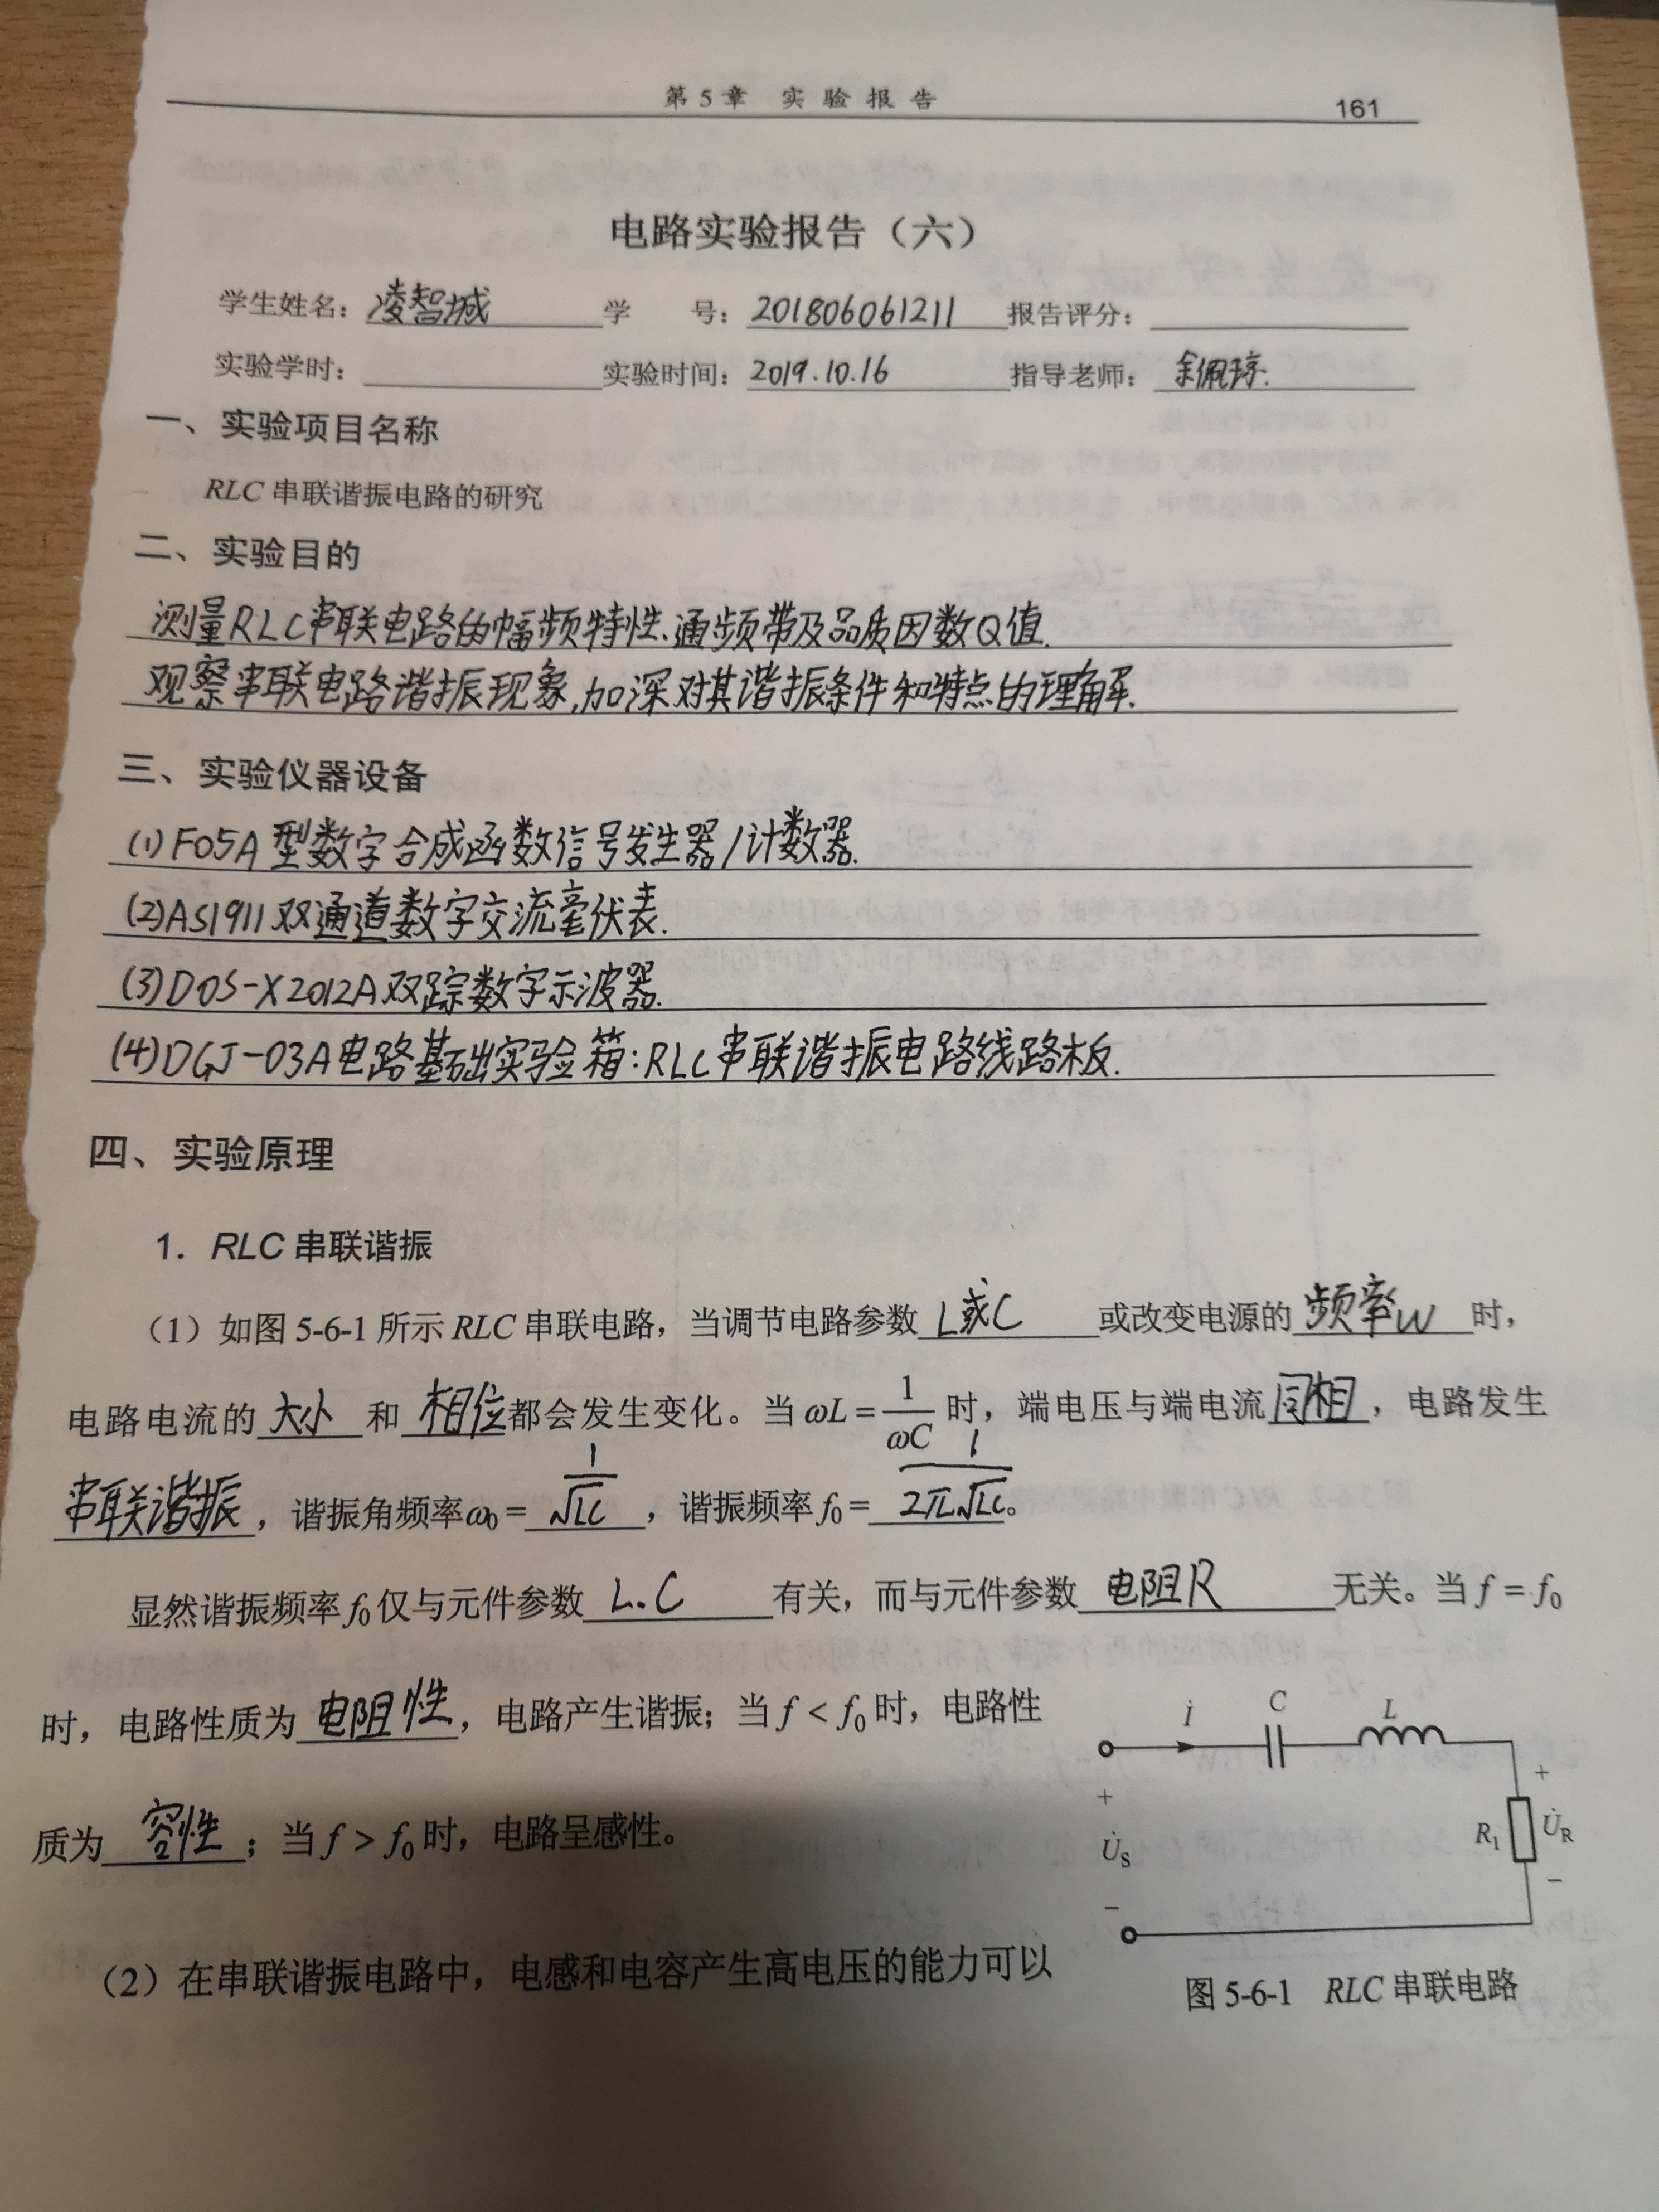 第5章 实验报告 161
电路实验报告（六）
学生姓名：凌智城 学 号：201806061211 报告评分：
实验学时： 实验时间：2019.10.16 指导老师：余佩琼
一、实验项目名称
RLC 串联谐振电路的研究
二、实验目的
测量RLC串联电路的幅频特性、通频带及品质因数Q值.
观察串联电路谐振现象,加深对其谐振条件和特点的理解.
三、实验仪器设备
(1)F05A型数字合成函数信号发生器/计数器.
(2)AS1911双通道数字交流毫伏表.
(3)DOS-X2012A双踪数字示波器.
(4)DGJ-03A电路基础实验箱:RLC串联谐振电路线路板.
四、实验原理
1. RLC 串联谐振
（1）如图 5-6-1 所示 RLC 串联电路，当调节电路参数 L或C 或改变电源的 频率w 时，
电路电流的 大小 和 相位 都会发生变化。当 ωL = 1/ωC 时，端电压与端电流 同相，电路发生
串联谐振，谐振角频率ω₀ = 1/√LC，谐振频率 f₀ = 1/2π√LC。
显然谐振频率 f₀ 仅与元件参数 L.C 有关，而与元件参数 电阻R 无关。当 f = f₀
时，电路性质为 电阻性，电路产生谐振；当 f < f₀ 时，电路性
质为 容性；当 f > f₀ 时，电路呈感性。
İ C L
+ U̇S −
R₁ + U̇R −
（2）在串联谐振电路中，电感和电容产生高电压的能力可以
图 5-6-1 RLC 串联电路